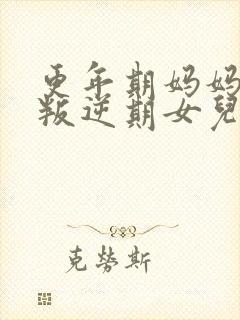 更年期妈妈
叛逆期女兒
克勞斯